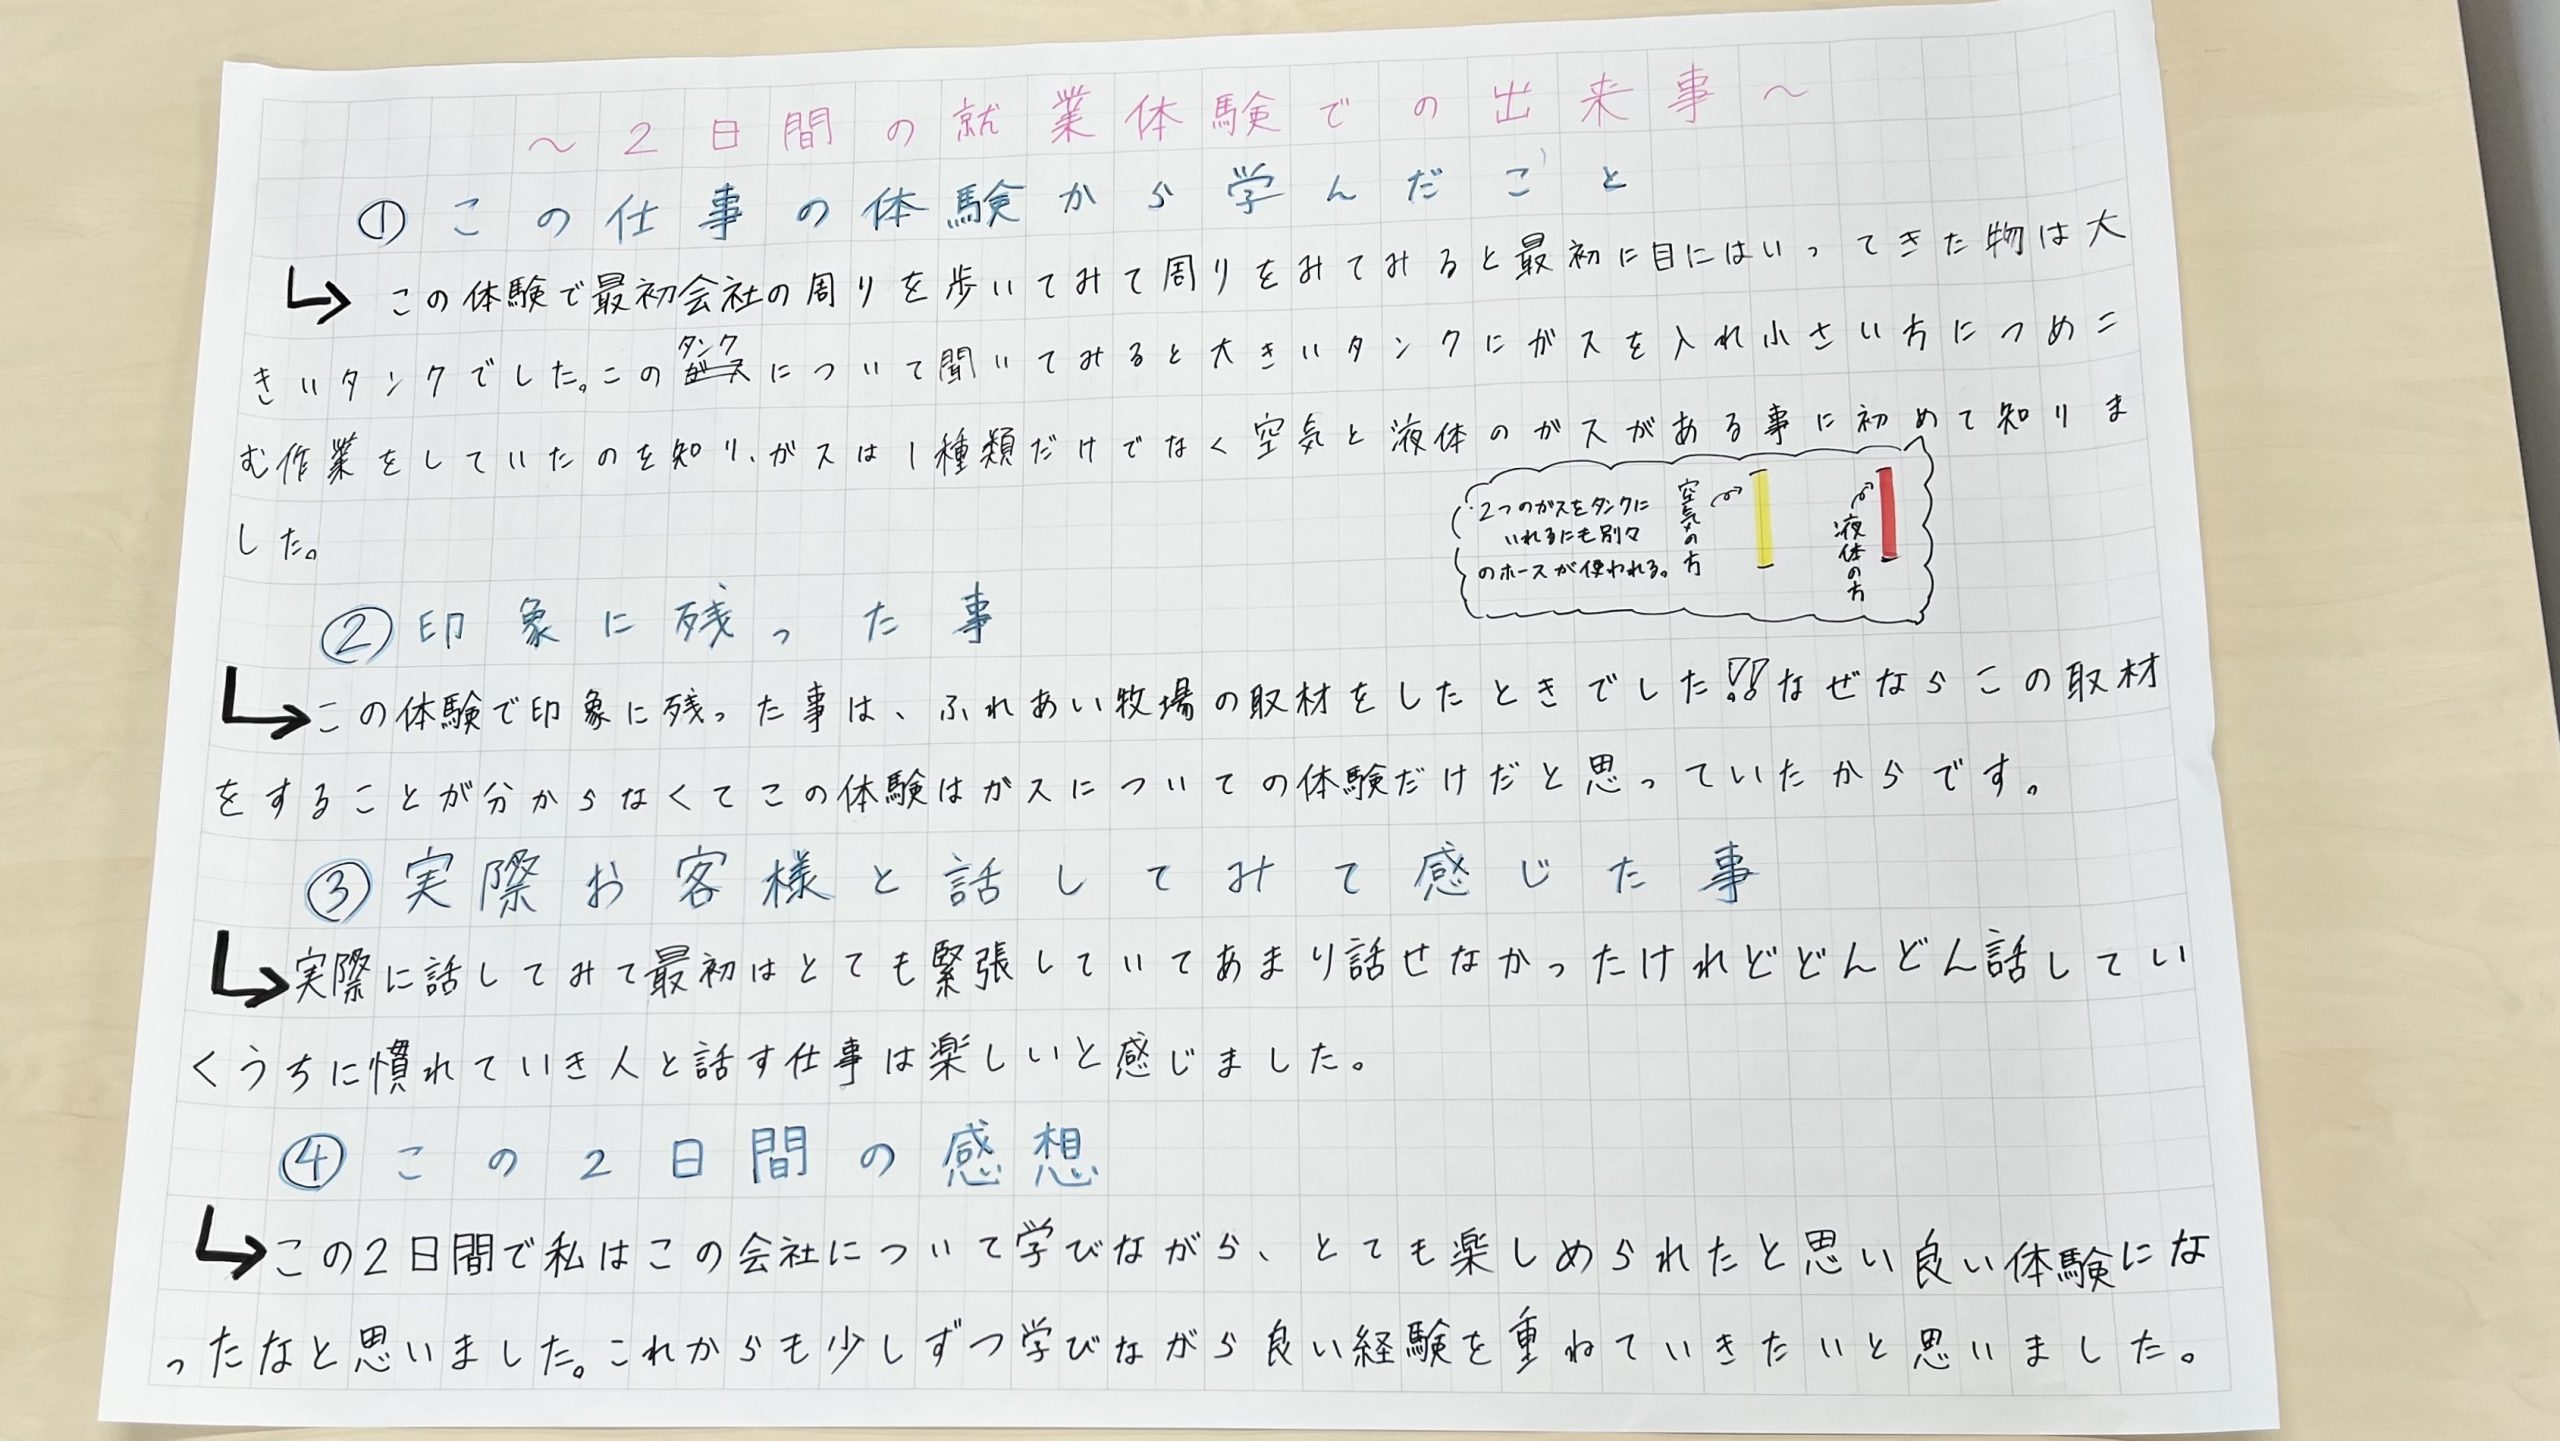 ～２日間の就業体験での出来事～
①この仕事の体験から学んだこと
この体験で最初会社の周りを歩いてみて周りをみてみると最初に目にはいってきた物は大
きいタンクでした。この タンク ガス について聞いてみると大きいタンクにガスを入れ小さい方につめこ
む作業をしていたのを知り、ガスは１種類だけでなく空気と液体のガスがある事に初めて知りま
した。
2つのガスをタンクに
いれるにも別々
のホースが使われる。
空気の方
液体の方
②印象に残った事
この体験で印象に残った事は、ふれあい牧場の取材をしたときでした!!なぜならこの取材
をすることが分からなくてこの体験はガスについての体験だけだと思っていたからです。
③実際お客様と話してみて感じた事
実際に話してみて最初はとても緊張していてあまり話せなかったけれどどんどん話してい
くうちに慣れていき人と話す仕事は楽しいと感じました。
④この２日間の感想
この２日間で私はこの会社について学びながら、とても楽しめられたと思い良い体験にな
ったなと思いました。これからも少しずつ学びながら良い経験を重ねていきたいと思いました。